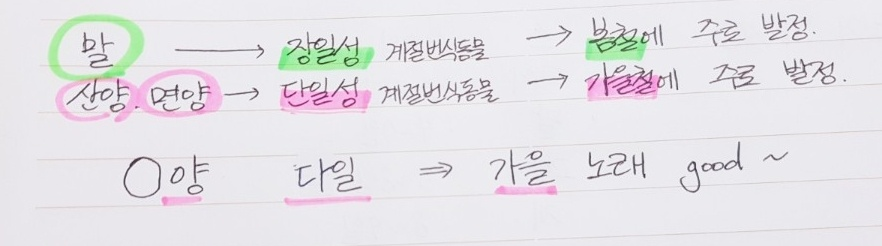 말 → 장일성 계절번식동물 → 봄철에 주로 발정.
산양. 면양 → 단일성 계절번식동물 → 가을철에 주로 발정.
○양 다일 ⇒ 가을 노래 good ~